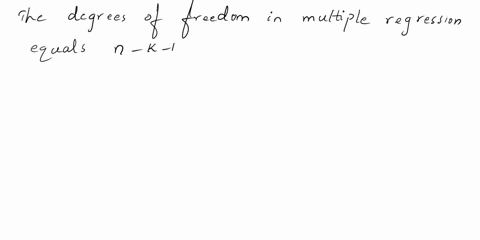 The degrees of freedom in multiple regression
equals n-k-1